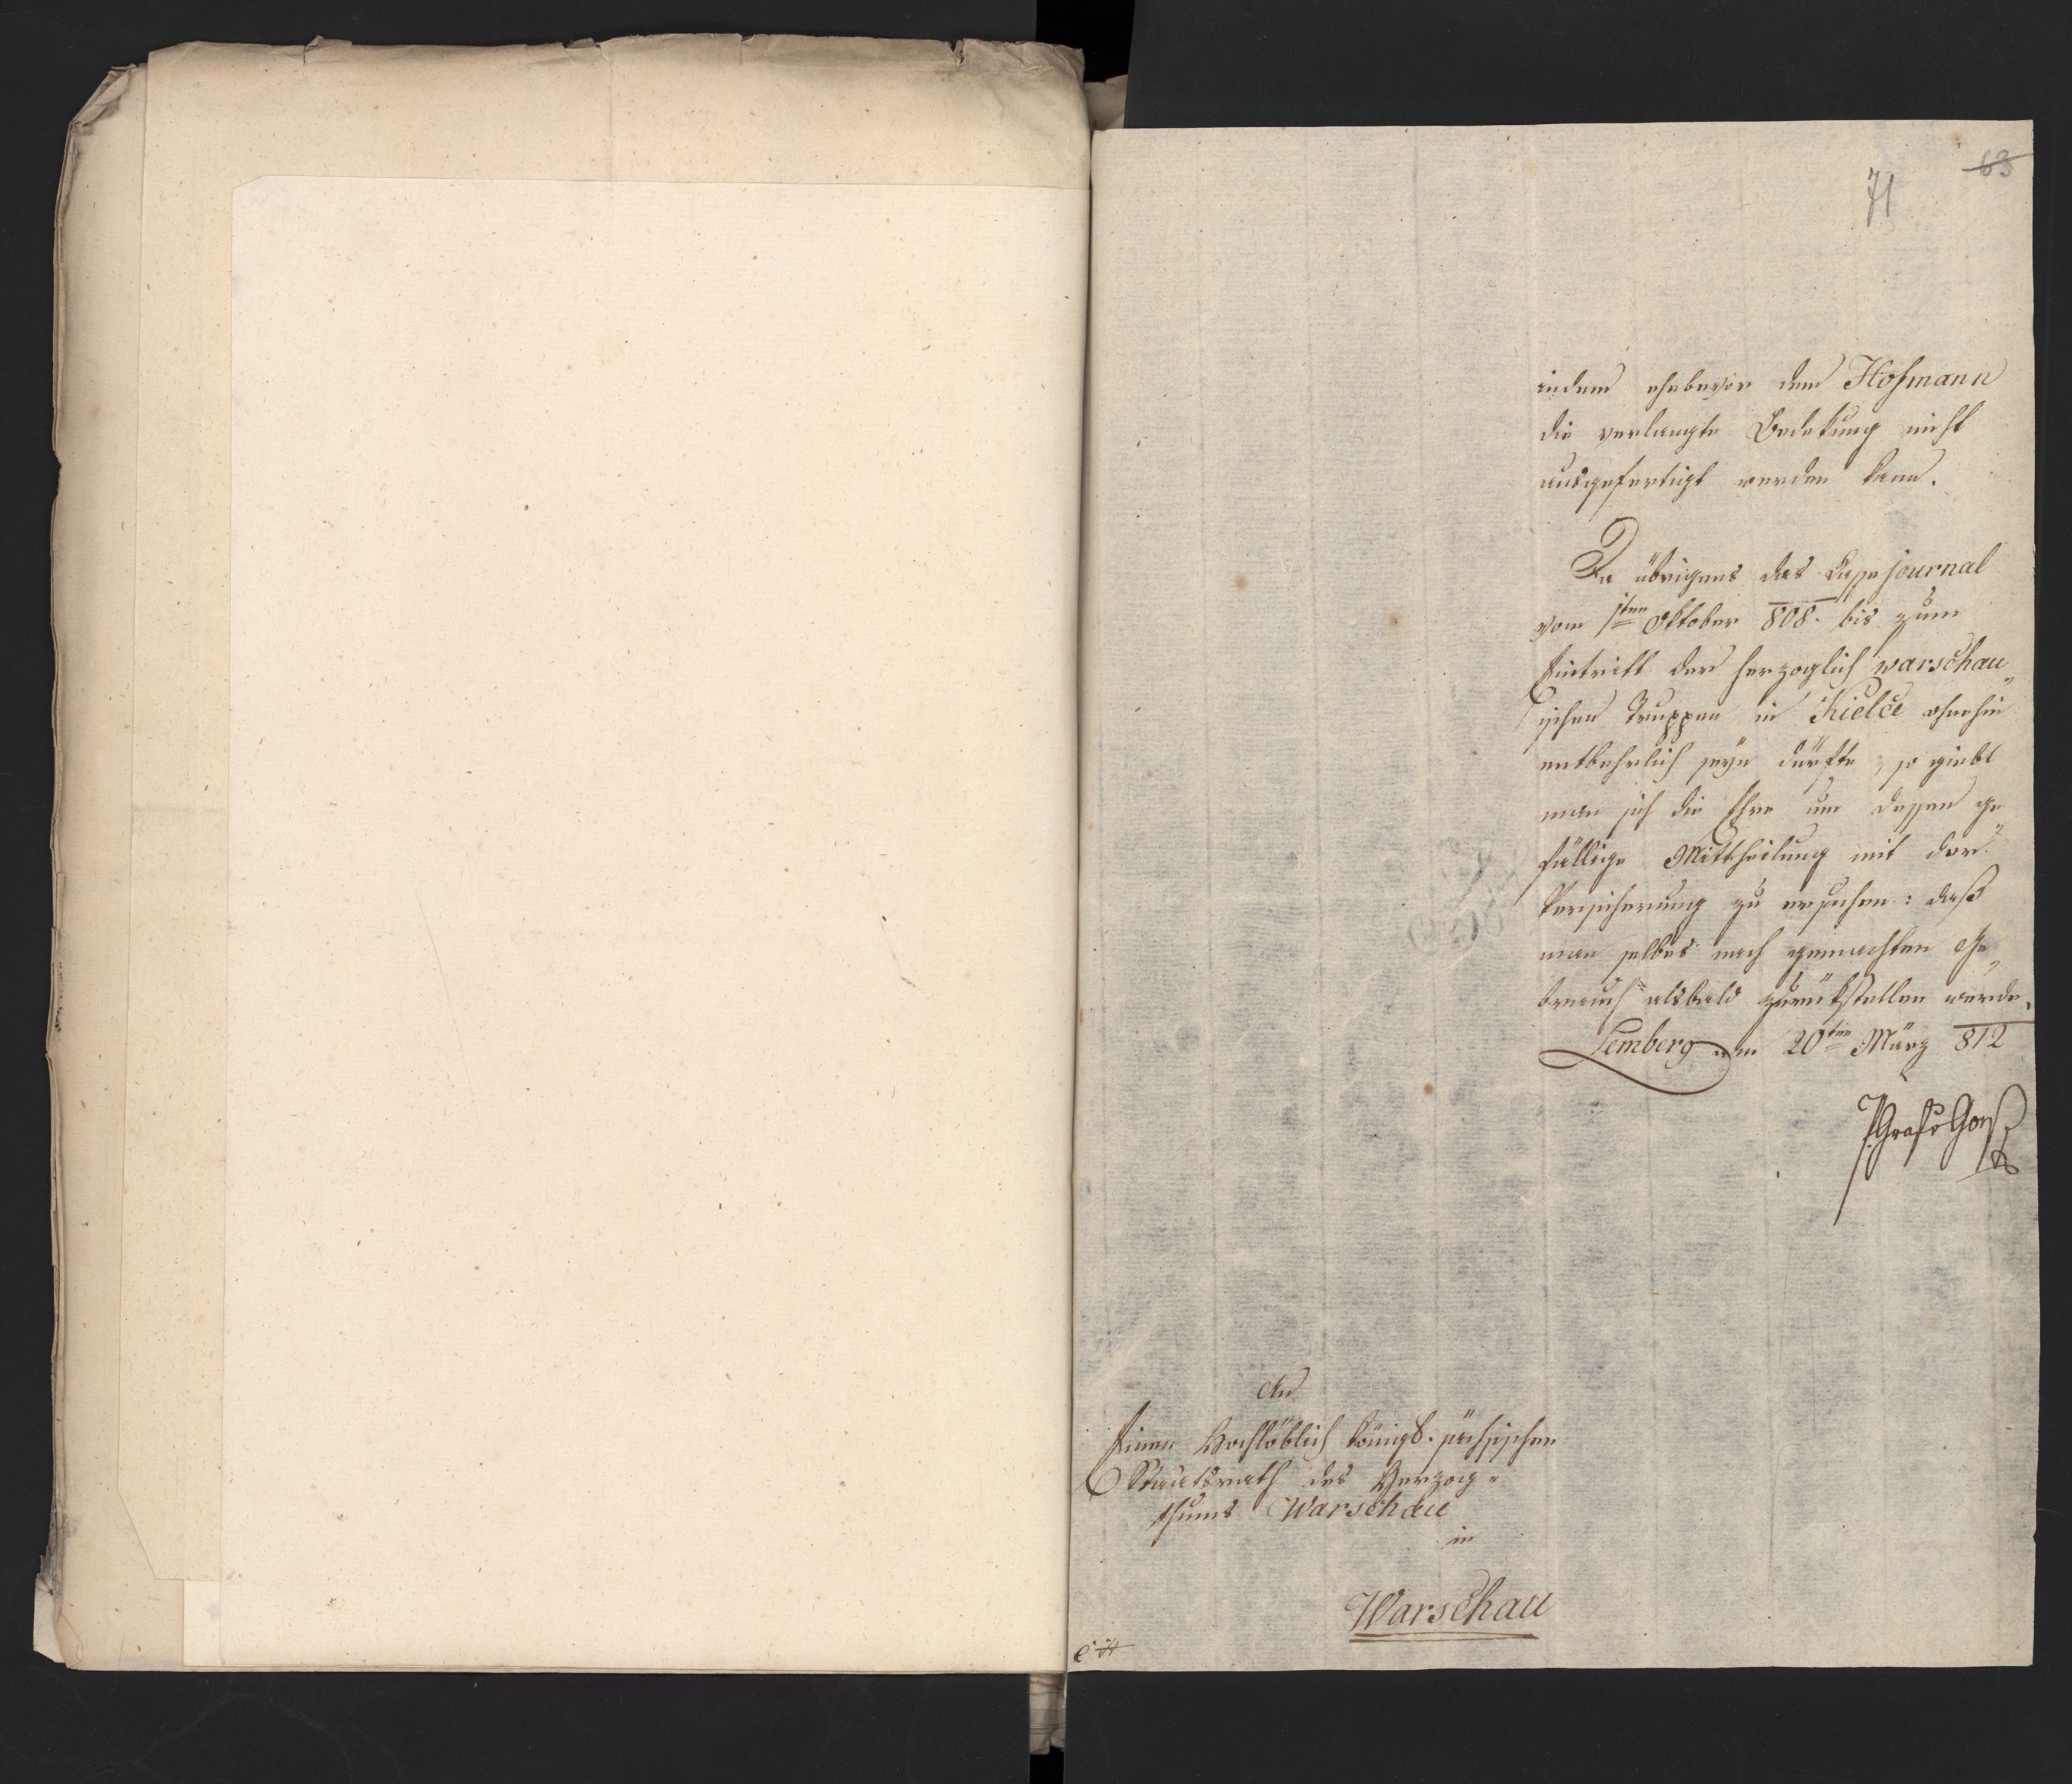 63
71
indem ehebevor dem Hofmann
die verlangte Bedekung nicht
ausgefertigt werden kann.
Da übrigens das Cassejournal
vom 1ten Oktober 808. bis zum
Eintritt der herzoglich warschau„
ischen Truppen in Kielce ohnehin
entbehrlich seyn dürfte, so giebt
man sich die Ehre um dessen ge„
fällige Mittheilung mit der
Versicherung zu ersuchen: daß
man selbes nach gemachten Ge„
brauch alsbald zurükstellen werde.
Lemberg am 20ten März 812
Graf Goeß
An
Einen Hochlöblich königl. sächsischen
Staatsrath des Herzog„
thums Warschau
in
Warschau